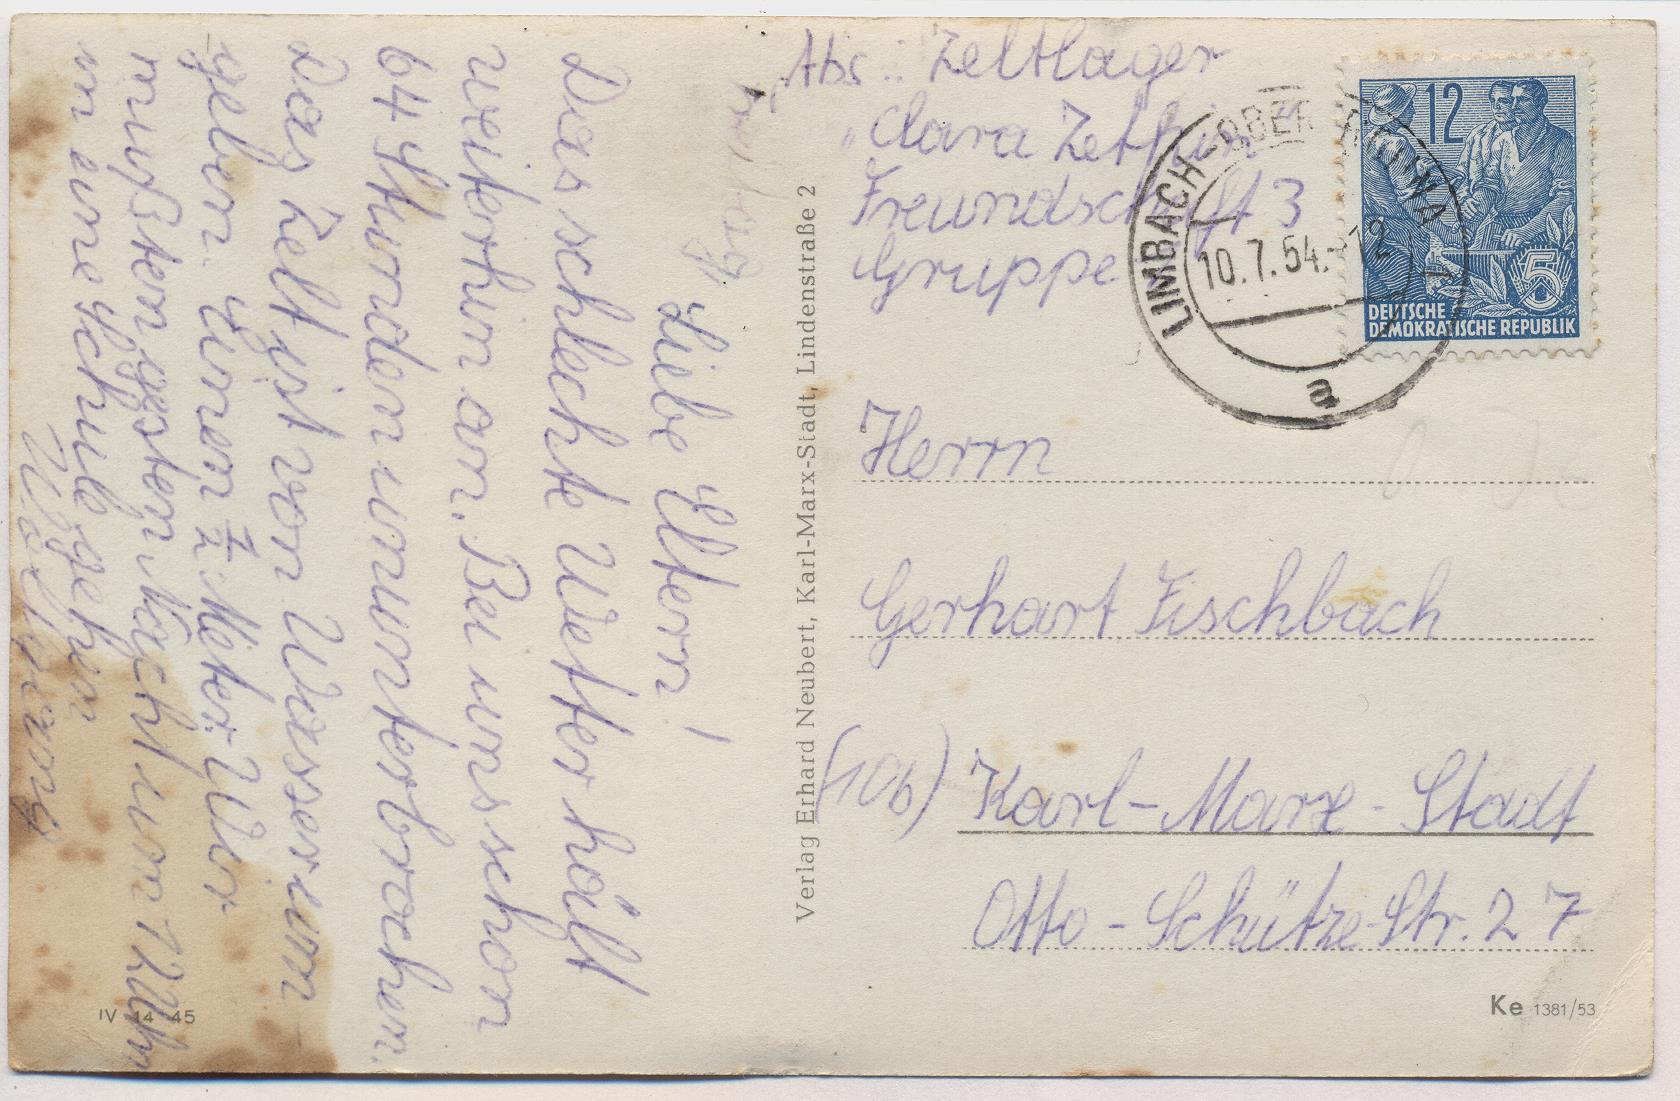 Freitag
Liebe Eltern!
Das schlechte Wetter hält
weiterhin an. Bei uns schon
64 Stunden ununterbrochen.
Das Zelt ist von Wasser um-
geben. Einen 1/2 Meter. Wir
mußten gestern Nacht um 12 Uhr
in eine Schule gehen
Wolfgang
Abs.: Zeltlager
"Clara Zetkin"
Freundschaft 3
Gruppe
Herrn
Gerhart Fischbach
(10b) Karl-Marx-Stadt
Otto-Schütze-Str. 27
Verlag Erhard Neubert, Karl-Marx-Stadt, Lindenstraße 2
IV 14 45
Ke 1381/53
12
5
DEUTSCHE
DEMOKRATISCHE REPUBLIK
LIMBACH-OBERFROHNA 1
10.7.54.-12
a